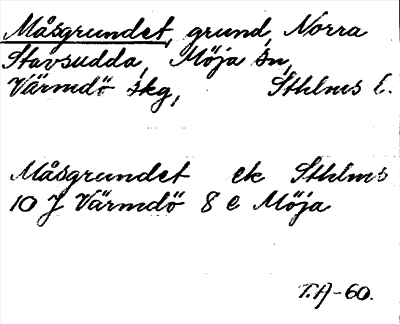 Måsgrundet, grund, Norra
Stavsudda, Möja sn,
Värmdö skg, Sthlms l.
Måsgrundet ek Sthlms
10 J Värmdö 8 e Möja
T.A-60.